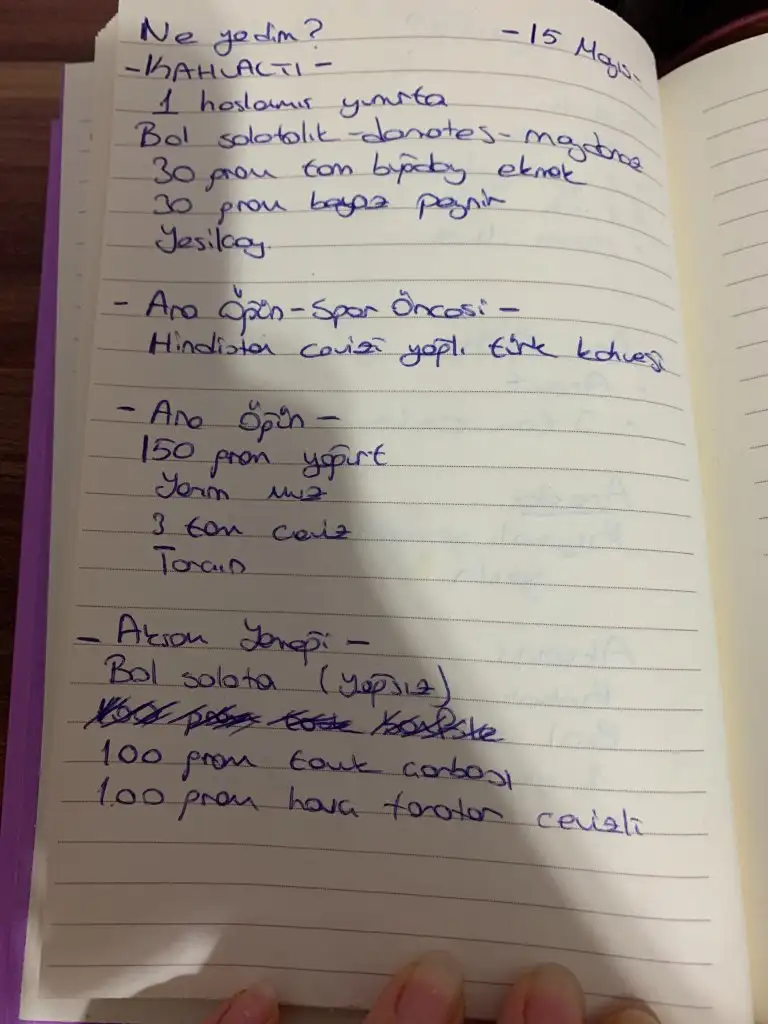 Ne yedim? -15 Mayıs-
-KAHVALTI-
1 haşlanmış yumurta
Bol salatalık -domates- maydanoz
30 gram tam buğday ekmek
30 gram beyaz peynir
Yeşilçay.
- Ara Öğün-Spor Öncesi -
Hindistan cevizi yağlı türk kahvesi
- Ara Öğün -
150 gram yoğurt
Yarım muz
3 tam ceviz
Tarçın
- Akşam Yemeği -
Bol salata (yağsız)
100 gram tavuk çorbası
100 gram havuç tarator cevizli